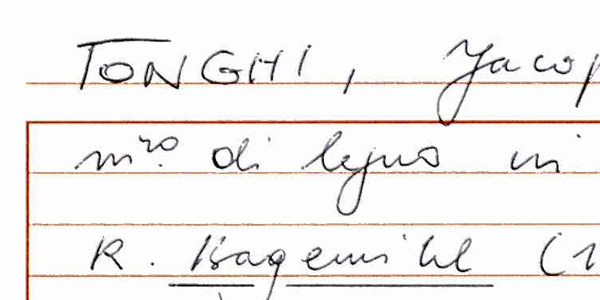 TONGHI, Jacop
m.ro di legno in
R. Bagemihl (1